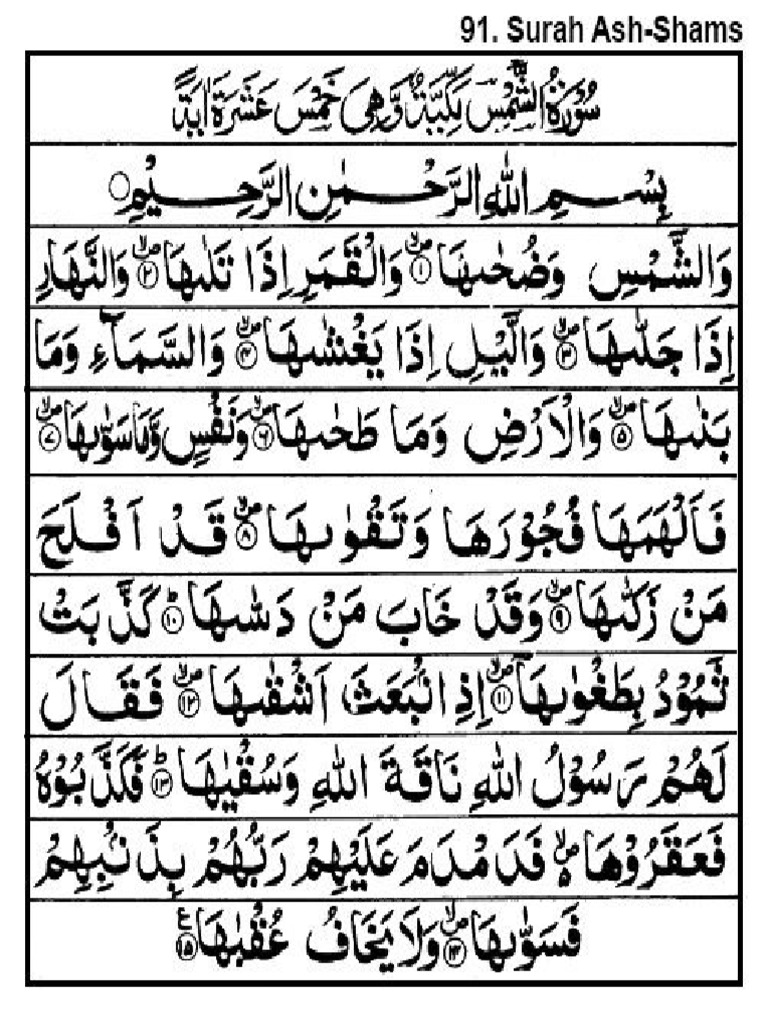 91. Surah Ash-Shams
سُوْرَةُ الشَّمْسِ مَكِّيَّةٌ وَّهِىَ خَمْسَ عَشَرَةَ اٰيَةً
بِسْمِ اللهِ الرَّحْمٰنِ الرَّحِيْمِ ○
وَالشَّمْسِ وَضُحٰىهَا ۙ۝۱ وَالْقَمَرِ اِذَا تَلٰىهَا ۙ۝۲ وَالنَّهَارِ
اِذَا جَلّٰىهَا ۙ۝۳ وَالَّيْلِ اِذَا يَغْشٰىهَا ۙ۝۴ وَالسَّمَآءِ وَمَا
بَنٰىهَا ۙ۝۵ وَالْاَرْضِ وَمَا طَحٰىهَا ۙ۝۶ وَنَفْسٍ وَّمَا سَوّٰىهَا ۙ۝۷
فَاَلْهَمَهَا فُجُوْرَهَا وَتَقْوٰىهَا ۙ۝۸ قَدْ اَفْلَحَ
مَنْ زَكّٰىهَا ۙ۝۹ وَقَدْ خَابَ مَنْ دَسّٰىهَا ؕ۝۱۰ كَذَّبَتْ
ثَمُوْدُ بِطَغْوٰىهَاۤ ۙ۝۱۱ اِذِ انْۢبَعَثَ اَشْقٰىهَا ۙ۝۱۲ فَقَالَ
لَهُمْ رَسُوْلُ اللهِ نَاقَةَ اللهِ وَسُقْيٰهَا ؕ۝۱۳ فَكَذَّبُوْهُ
فَعَقَرُوْهَا ۙ۵ فَدَمْدَمَ عَلَيْهِمْ رَبُّهُمْ بِذَنْۢبِهِمْ
فَسَوّٰىهَا ۙ۝۱۴ وَلَا يَخَافُ عُقْبٰهَا ۝۱۵ ع